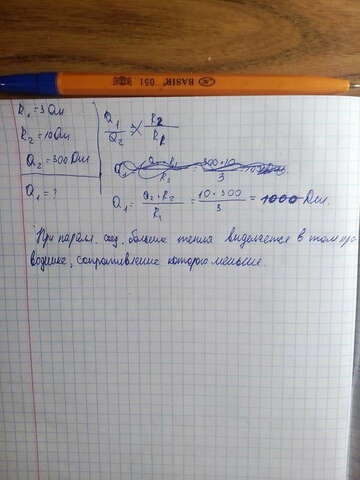 BASIR 051
R₁=3 Ом
R₂=10 Ом
Q₂=300 Дж
Q₁=?
Q₁/Q₂ = R₂/R₁
Q₁ = Q₂·R₂/R₁ = 10·300/3 = 1000 Дж.
При паралл. соед. больше тепла выделяется в том про-
воднике, сопротивление которого меньше.